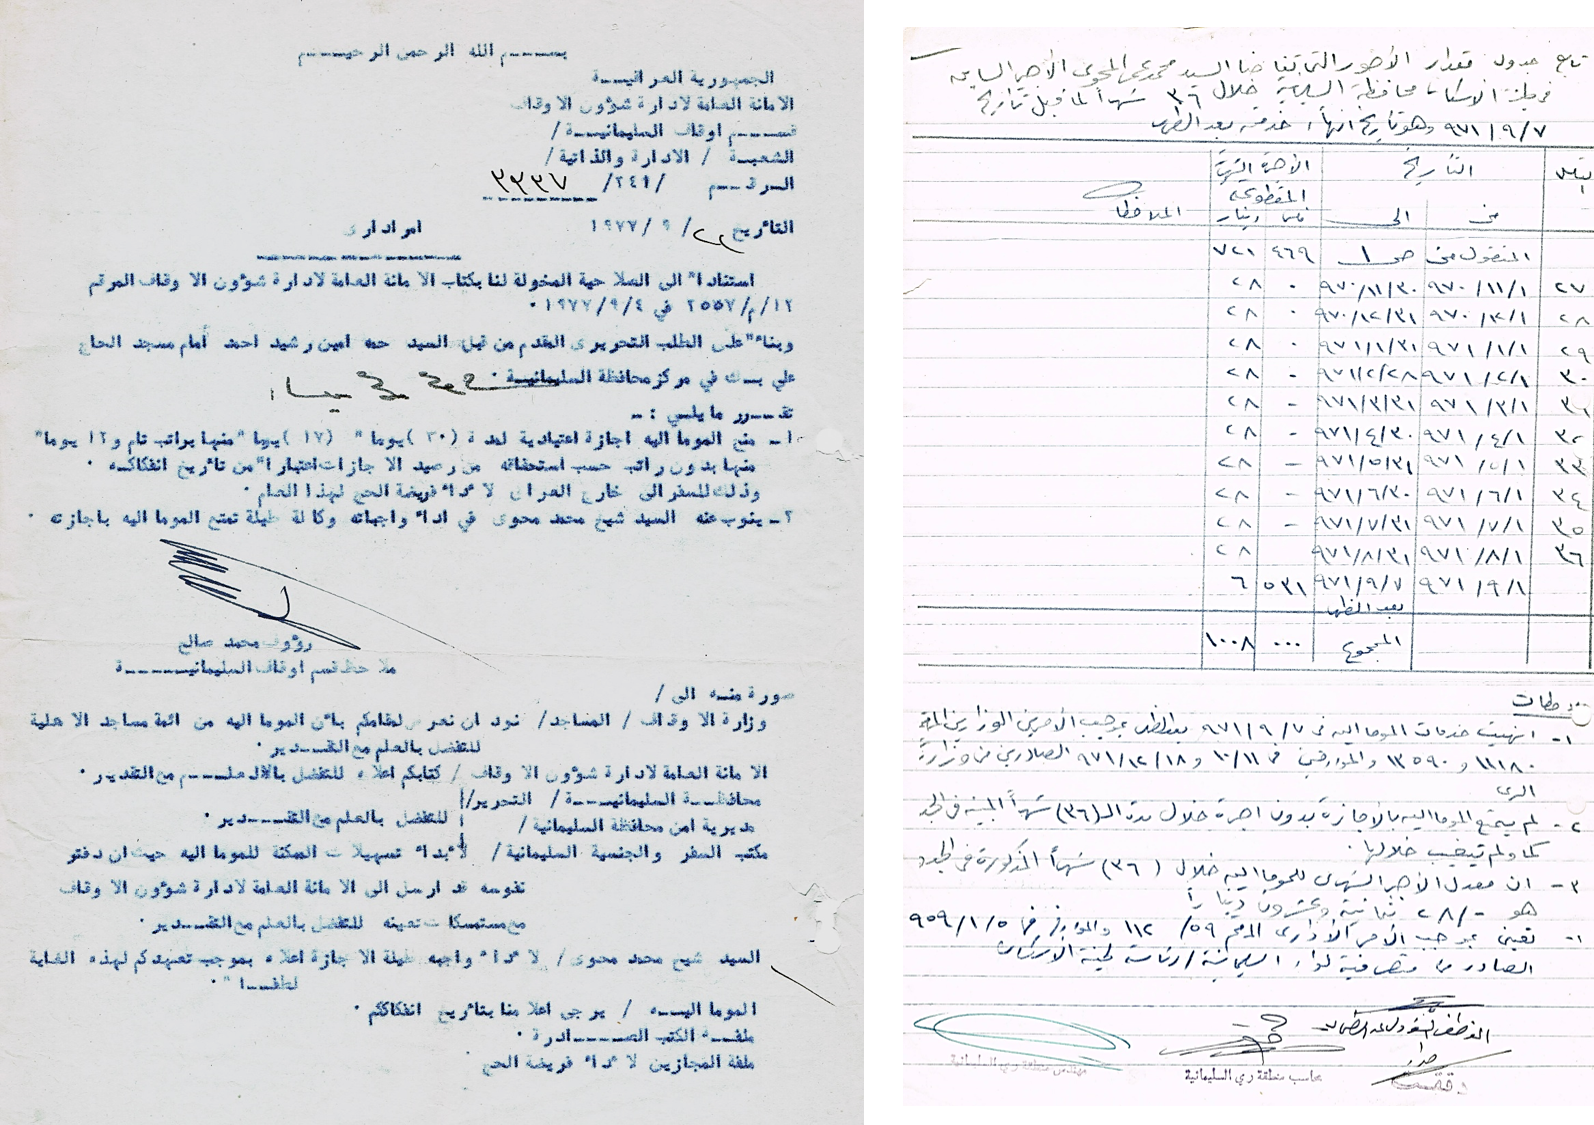 بسم الله الرحمن الرحيم
الجمهورية العراقية
الامانة العامة لادارة شؤون الاوقاف
قسم اوقاف السليمانية/
الشعبة / الادارة والذاتية/
الرقم / ٢٤١/ ٣٩٣٧
التاريخ ٢٢/ ٩ /١٩٧٧
امر اداري
استنادا" الى الصلاحية المخولة لنا بكتاب الامانة العامة لادارة شؤون الاوقاف المرقم
١٢/م/٢٥٥٧ في ١٩٧٧/٩/٤ ٠
وبناء"على الطلب التحريري المقدم من قبل السيد حمه امين رشيد احمد أمام مسجد الحاج
علي بك في مركز محافظة السليمانية ٠
تقرر ما يلي : -
١- منح الموما اليه اجازة اعتيادية لمدة (٣٠ )يوما" (١٧ )يوما "منها براتب تام و١٣ يوما"
منها بدون راتب حسب استحقاقه من رصيد الاجازات اعتبارا"من تاريخ انفكاكه ٠
وذلك للسفر الى خارج العراق لاداء فريضة الحج لهذا العام ٠
٢- ينوب عنه السيد شيخ محمد محوى في اداء واجباته وكالة طيلة تمتع الموما اليه باجازته ٠
رؤوف محمد صالح
ملاحظ قسم اوقاف السليمانية
صورة منه الى /
وزارة الاوقاف / المساجد/ نود ان نعرض لمقامكم بان الموما اليه من ائمة مساجد الاهلية
للتفضل بالعلم مع التقدير ٠
الامانة العامة لادارة شؤون الاوقاف / كتابكم اعلاه للتفضل بالعلم مع التقدير ٠
محافظة السليمانية / التحرير/
مديرية امن محافظة السليمانية / للتفضل بالعلم مع التقدير ٠
مكتب السفر والجنسية السليمانية/ لابداء تسهيلات الممكنة للموما اليه حيث ان دفتر
نفوسه قد ارسل الى الامانة العامة لادارة شؤون الاوقاف
مع مستمسكات تعينه للتفضل بالعلم مع التقدير ٠
السيد شيخ محمد محوى/ لاداء واجبه طيلة الاجازة اعلاه بموجب تعهدكم لهذه الغاية
لطفا " ٠
الموما اليه / يرجى اعلامنا بتاريخ انفكاككم ٠
ملفة الكتب الصادرة ٠
ملفة المجازين لاداء فريضة الحج
تابع جدول مقدار الأجور التي تقاضاها السيد محمد عمر المحوي الأجير السابق
في لجنة الاسكان محافظة السليمانية خلال ٣٦ شهراً لما قبل تاريخ
٩٧١/٩/٧ وهو تاريخ انهاء خدمته بعد الظهر
التاريخ الأجرة الشهرية المقطوعة
من الى فلس دينار الملاحظات
المنقول من ص ١ ٤٦٩ ٧٢١
٢٧ ٩٧٠/١١/١ ٩٧٠/١١/٣٠ ٠ ٢٨
٢٨ ٩٧٠/١٢/١ ٩٧٠/١٢/٣١ ٠ ٢٨
٢٩ ٩٧١/١/١ ٩٧١/١/٣١ ٠ ٢٨
٣٠ ٩٧١/٢/١ ٩٧١/٢/٢٨ - ٢٨
٣١ ٩٧١/٣/١ ٩٧١/٣/٣١ - ٢٨
٣٢ ٩٧١/٤/١ ٩٧١/٤/٣٠ - ٢٨
٣٣ ٩٧١/٥/١ ٩٧١/٥/٣١ - ٢٨
٣٤ ٩٧١/٦/١ ٩٧١/٦/٣٠ - ٢٨
٣٥ ٩٧١/٧/١ ٩٧١/٧/٣١ - ٢٨
٣٦ ٩٧١/٨/١ ٩٧١/٨/٣١ ٢٨
٩٧١/٩/١ ٩٧١/٩/٧ ٥٣١ ٦
بعد الظهر
المجموع ٠٠٠ ١٠٠٨
ملاحظات
١- انهيت خدمات الموما اليه في ٩٧١/٩/٧ بعد الظهر بموجب الأمرين الوزاريين المرقمين
١١١٨٠ و ١٣٥٩٠ والمؤرخين في ١٠/١١ و ٩٧١/١٢/١٨ الصادرين من وزارة
الري
٢- لم يتمتع الموما اليه بالأجازة بدون اجرة خلال مدة الـ(٣٦) شهراً المبينة في الجدول
كما ولم يتغيب خلالها ٠
٣- ان معدل الأجر الشهري للموما اليه خلال (٣٦) شهراً المذكورة في الجدول
هو -/٢٨ ثمانية وعشرون ديناراً
تعين بموجب الأمر الأداري المرقم ٥٩/ ١١٢ والمؤرخ في ٩٥٩/١/٥
الصادر من متصرفية لواء السليمانية / رئاسة لجنة الاسكان
محاسب منطقة ري السليمانية
مهندس منطقة ري السليمانية